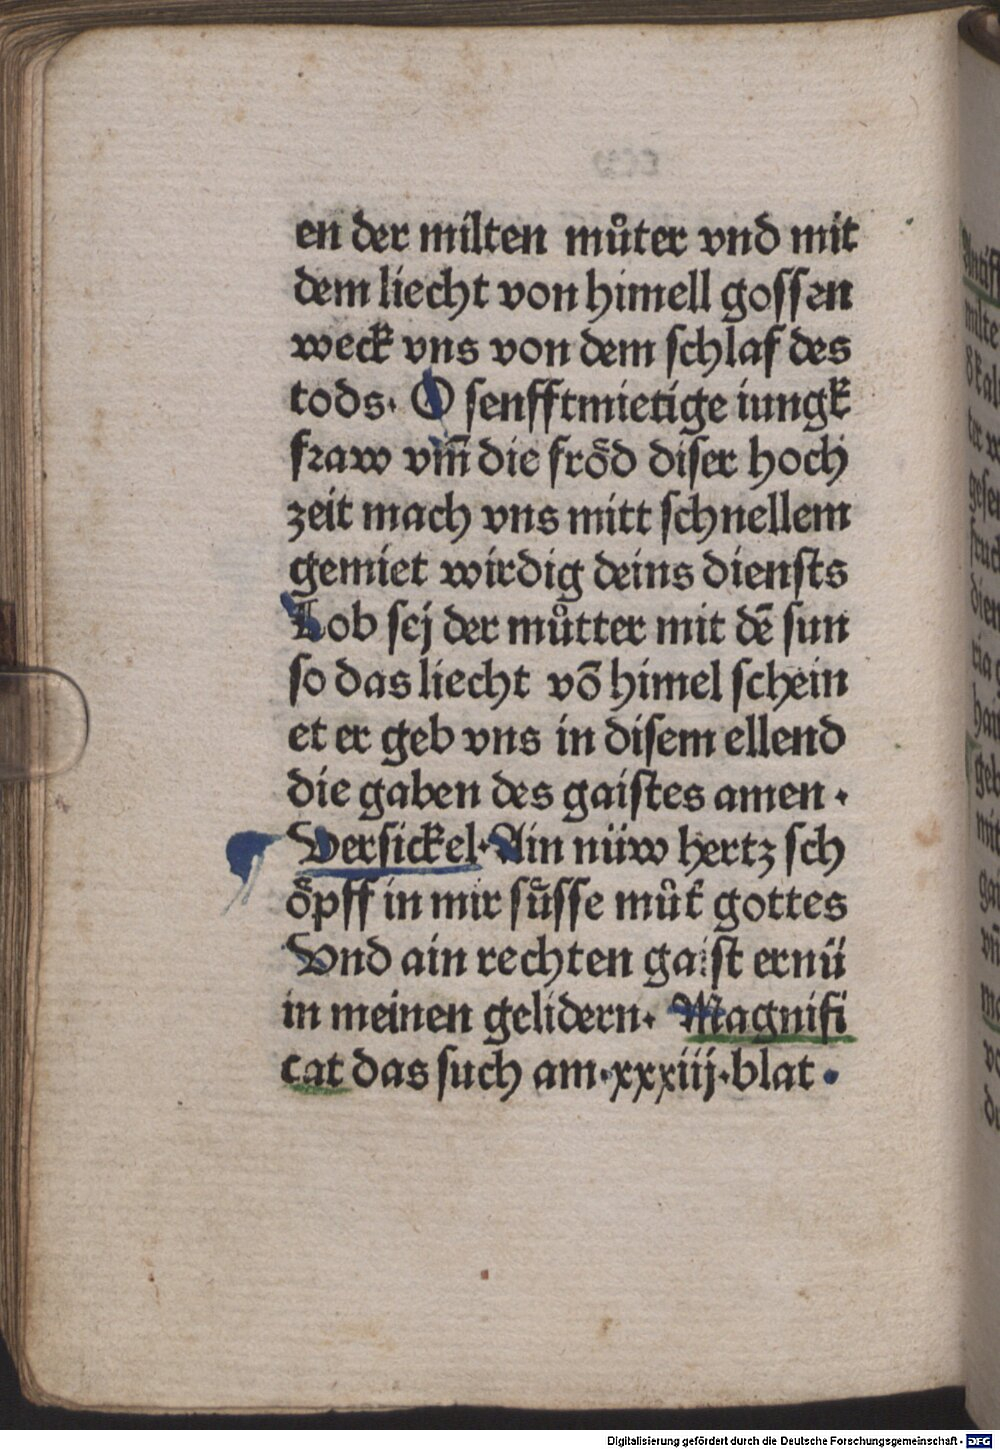 en der milten můter vnd mit
dem liecht von himell gossen
weck vns von dem schlaf des
tods. O senfftmietige iungk
fraw vm̄ die fröd diser hoch
zeit mach vns mitt schnellem
gemiet wirdig deins diensts
Lob sej der můtter mit dē sun
so das liecht vō himel schein
et er geb vns in disem ellend
die gaben des gaistes amen.
Versickel. Ain nüw hertz sch
öpff in mir sůsse můt gottes
Vnd ain rechten gaist ernü
in meinen gelidern. Magnifi
cat das such am.xxxiij.blat.
Digitalisierung gefördert durch die Deutsche Forschungsgemeinschaft - DFG